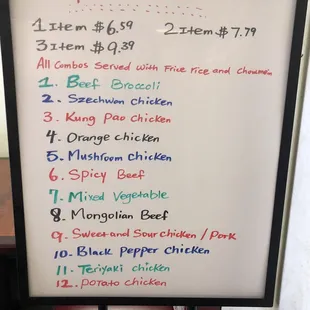 1 Item $6.59 2 Item $7.79
3 Item $9.39
All Combos Served with Frice rice and Choumein
1. Beef Broccoli
2. Szechwan chicken
3. Kung Pao chicken
4. Orange chicken
5. Mushroom chicken
6. Spicy Beef
7. Mixed Vegetable
8. Mongolian Beef
9. Sweet and Sour chicken / Pork
10. Black Pepper chicken
11. Teriyaki chicken
12. Potato chicken